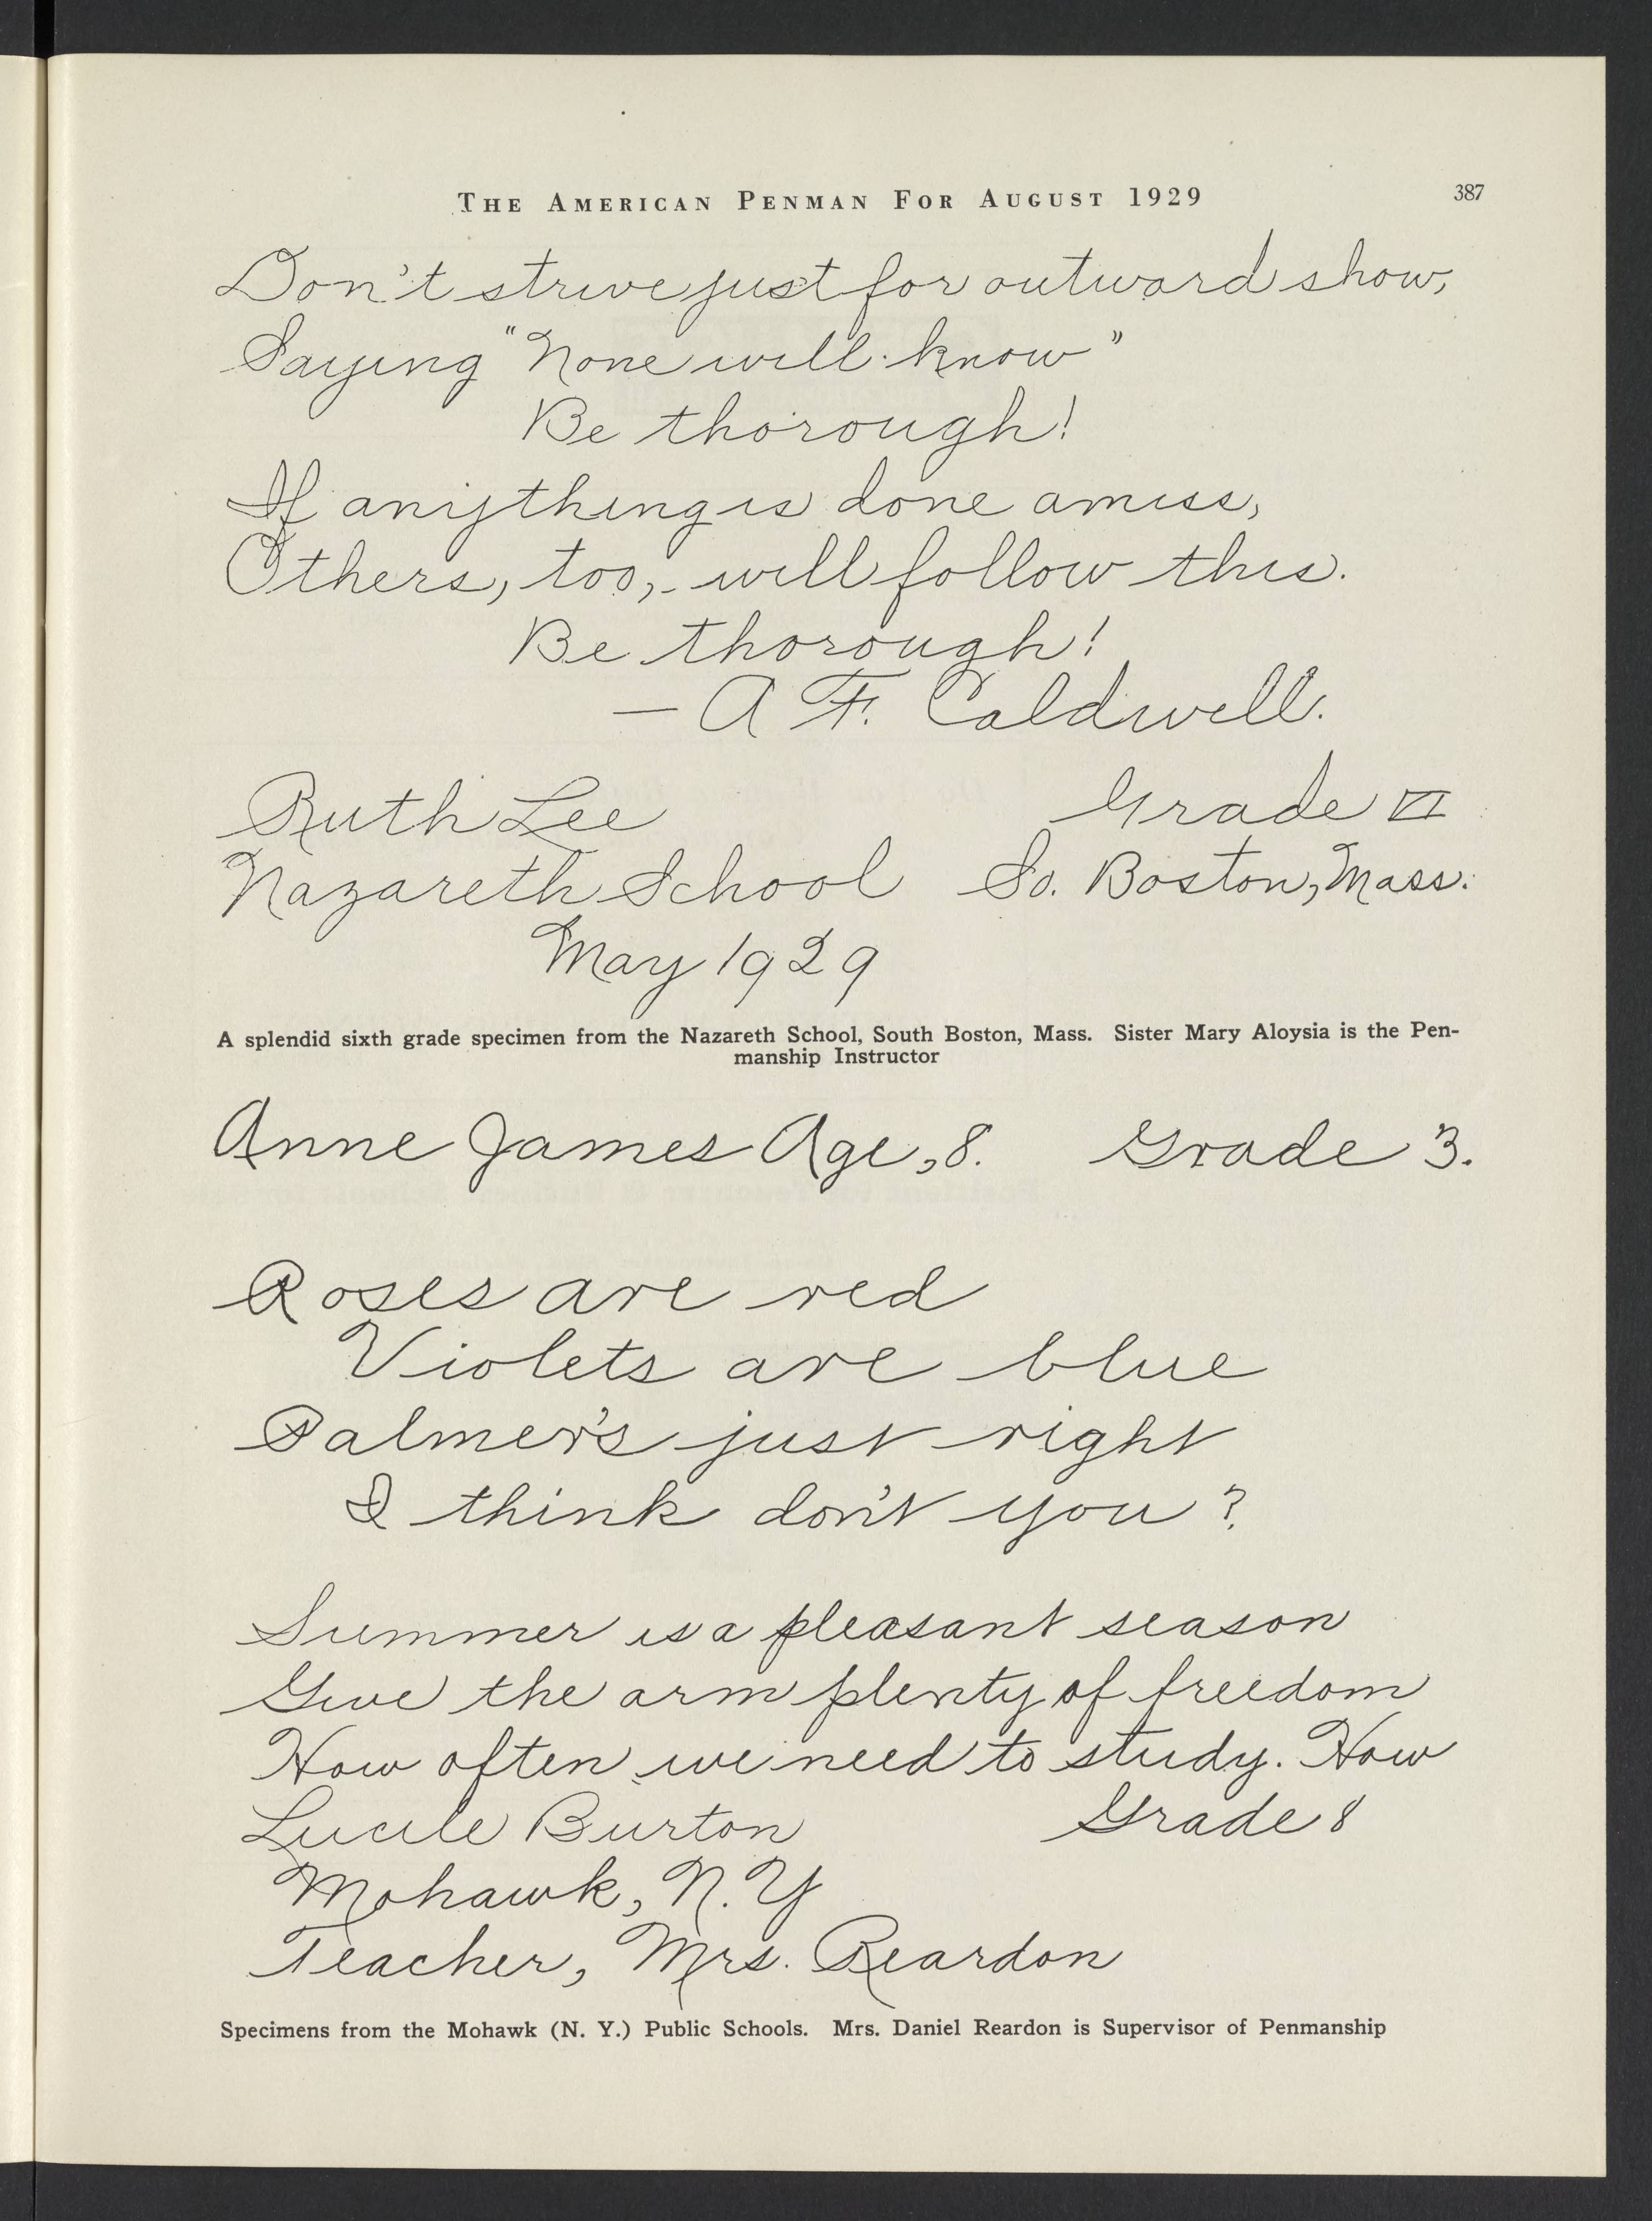 THE AMERICAN PENMAN FOR AUGUST 1929 387
Don't strive just for outward show,
Saying "None will know"
Be thorough!
If anything is done amiss,
Others, too, will follow this.
Be thorough!
— A F. Caldwell.
Ruth Lee Grade VI
Nazareth School So. Boston, Mass.
May 1929
A splendid sixth grade specimen from the Nazareth School, South Boston, Mass. Sister Mary Aloysia is the Pen-
manship Instructor
Anne James Age, 8. Grade 3.
Roses are red
Violets are blue
Palmer's just right
I think don't you?
Summer is a pleasant season
Give the arm plenty of freedom
How often we need to study. How
Lucile Burton Grade 8
Mohawk, N. Y
Teacher, Mrs. Reardon
Specimens from the Mohawk (N. Y.) Public Schools. Mrs. Daniel Reardon is Supervisor of Penmanship